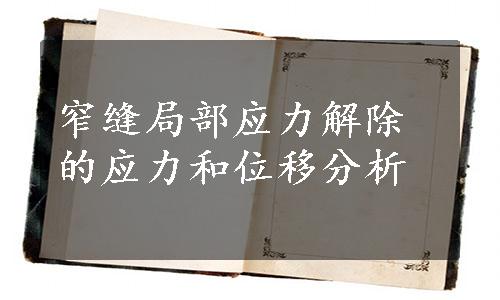 窄缝局部应力解除
的应力和位移分析